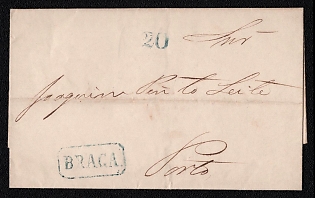 20 Snr
Joaquim Pinto Leite
Porto
BRAGA